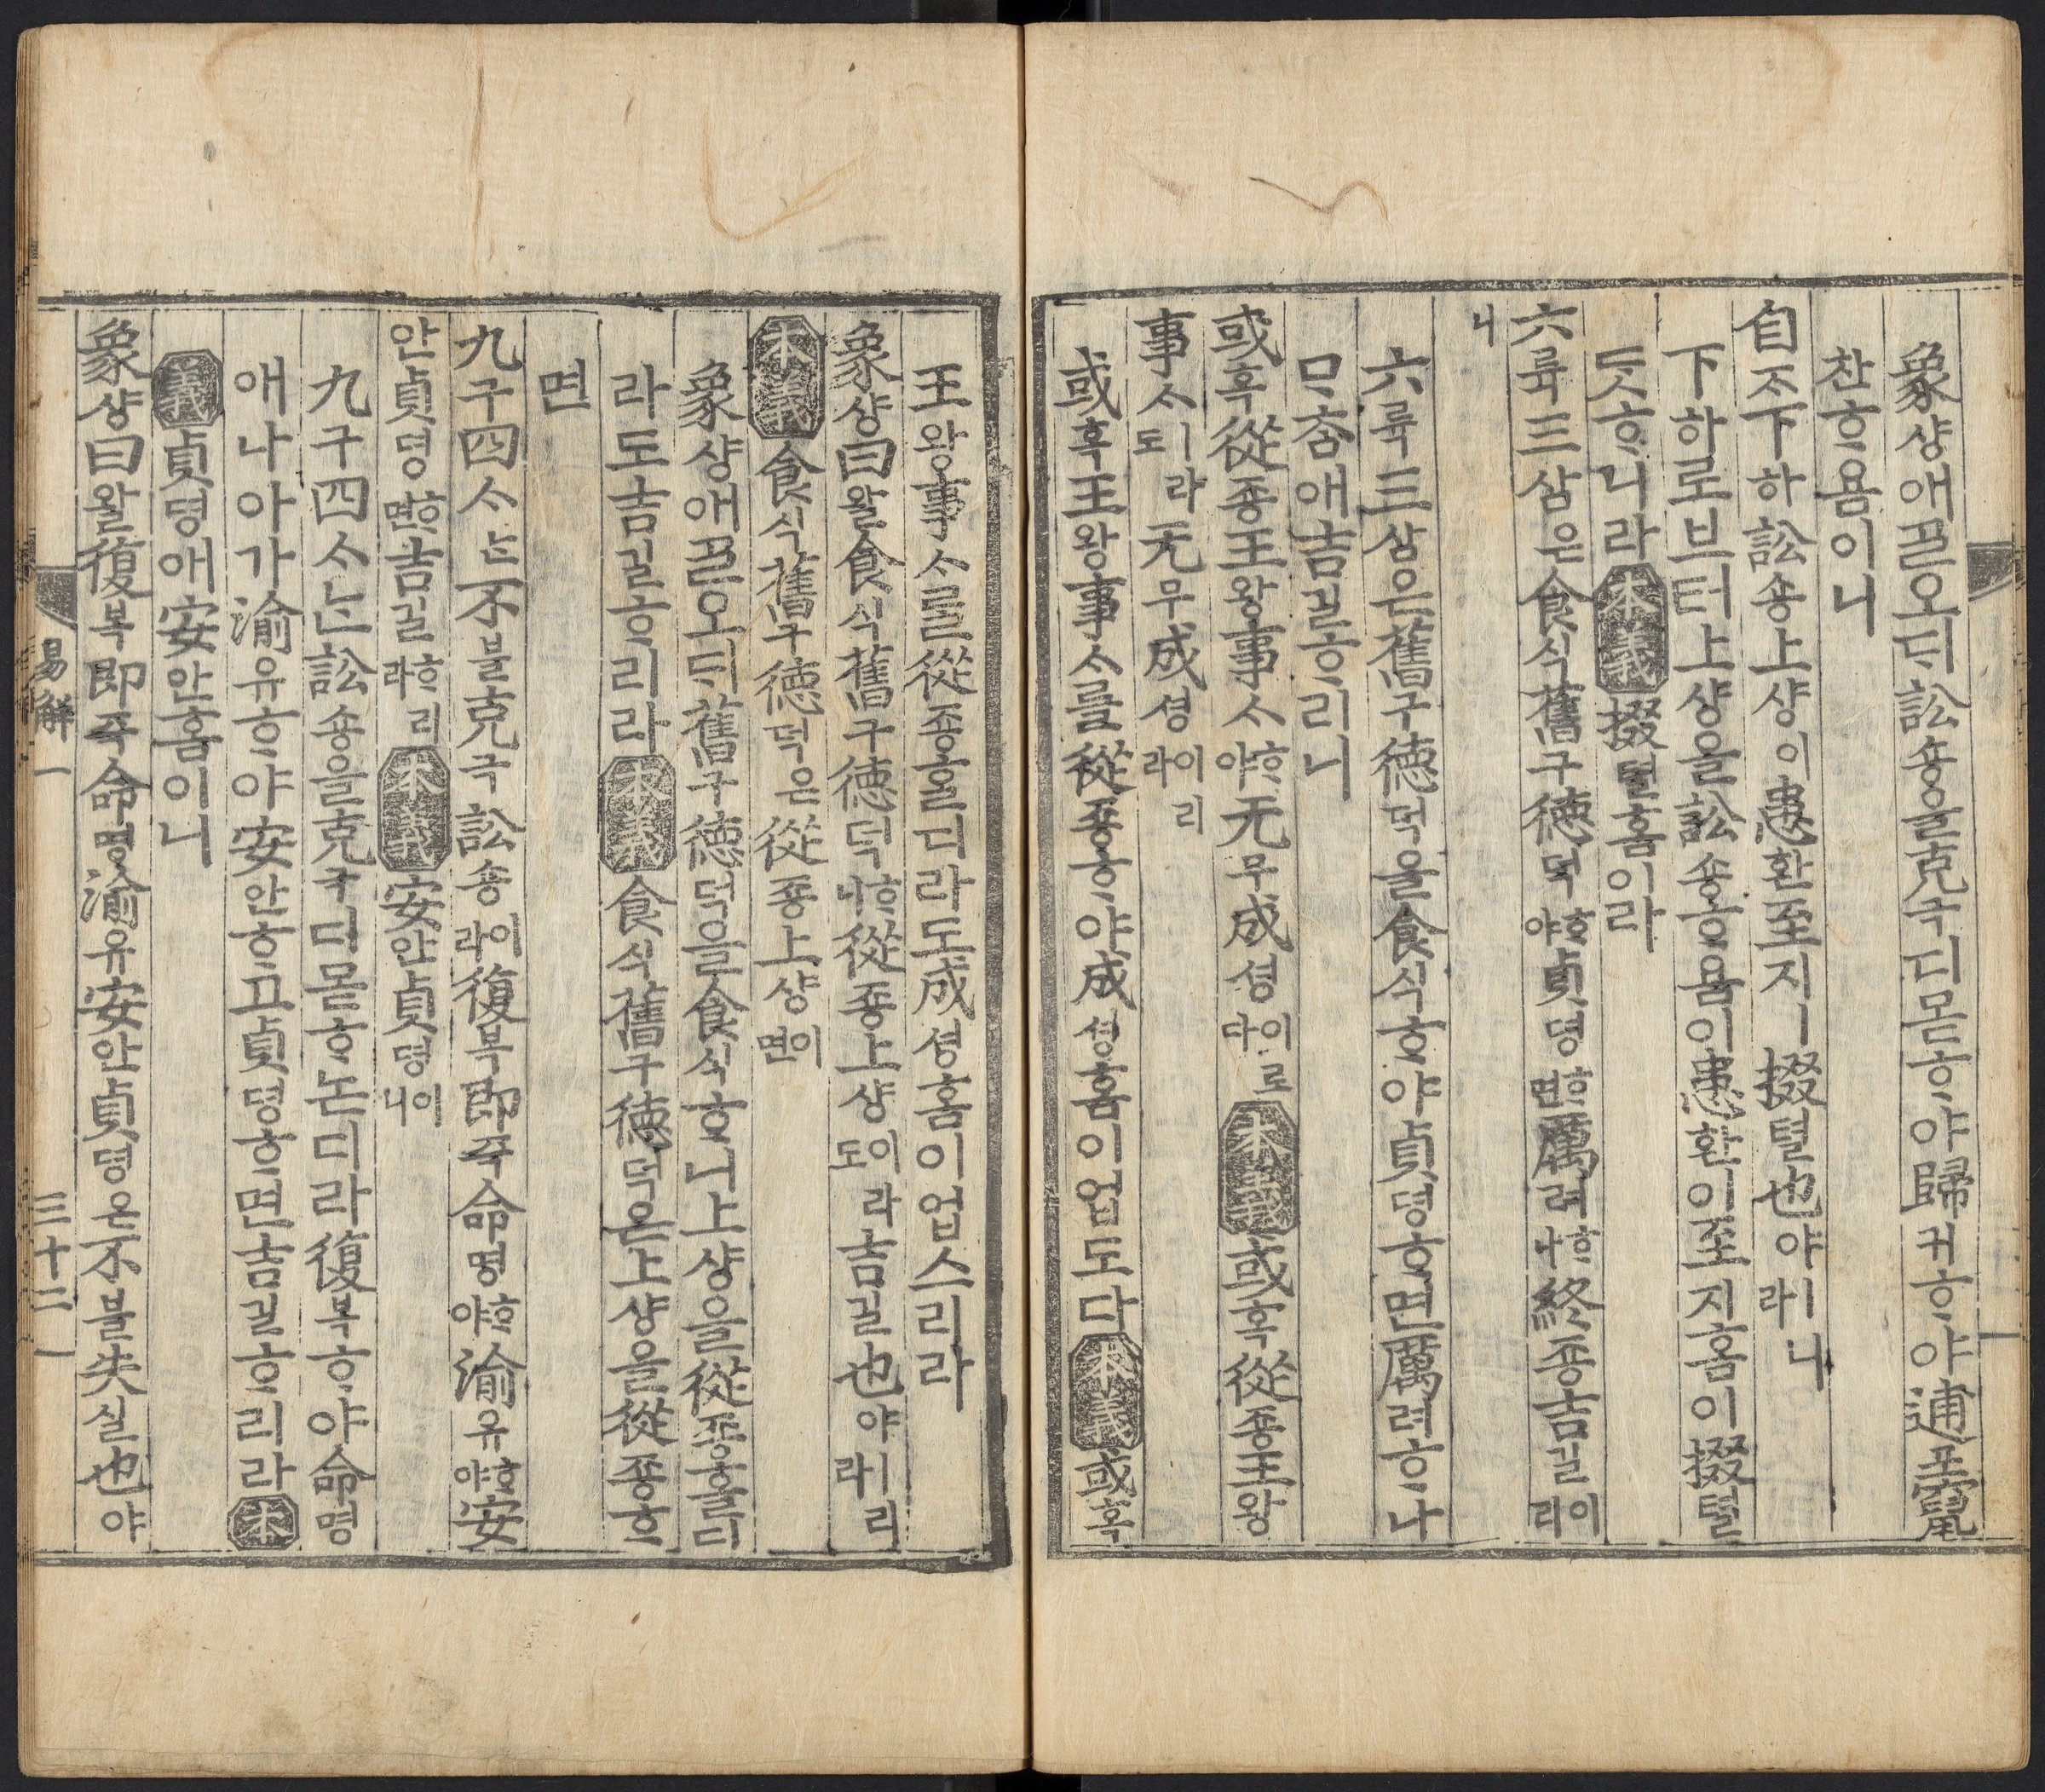 象샹애ᄀᆞᆯ오ᄃᆡ訟숑을克극디몯ᄒᆞ야歸귀ᄒᆞ야逋포竄
찬ᄒᆞ욤이니
自ᄌᆞ下하訟숑上샹이患환至지ㅣ掇텰也야ㅣ라니
下하로브터上샹을訟숑ᄒᆞ욤이患환이至지홈이掇텰
ᄃᆺᄒᆞ니라本義掇텰홈이라
六륙三삼은食식舊구德덕ᄒᆞ야貞뎡ᄒᆞ면厲려ᄒᆞ나終죵吉길이리
니
六륙三삼은舊구德덕을食식ᄒᆞ야貞뎡ᄒᆞ면厲려ᄒᆞ나
ᄆᆞᄎᆞᆷ애吉길ᄒᆞ리니
或혹從죵王왕事ᄉᆞᄒᆞ야无무成셩이로다本義或혹從죵王왕
事ᄉᆞㅣ라도无무成셩이리라
或혹王왕事ᄉᆞ를從죵ᄒᆞ야成셩홈이업도다本義或혹
王왕事ᄉᆞ를從죵홀디라도成셩홈이업스리라
象샹曰왈食식舊구德덕ᄒᆞ니從죵上샹이라도吉길也야ㅣ리라
本義食식舊구德덕은從죵上샹이면
象샹애ᄀᆞᆯ오ᄃᆡ舊구德덕을食식ᄒᆞ니上샹을從죵홀디
라도吉길ᄒᆞ리라本義食식舊구德덕은上샹을從죵ᄒᆞ
면
九구四ᄉᆞᄂᆞᆫ不블克극訟숑이라復복即즉命명ᄒᆞ야渝유ᄒᆞ야安
안貞뎡ᄒᆞ면吉길ᄒᆞ리라本義安안貞뎡이니
九구四ᄉᆞᄂᆞᆫ訟숑을克극디몯ᄒᆞ논디라復복ᄒᆞ야命명
애나아가渝유ᄒᆞ야安안ᄒᆞ고貞뎡ᄒᆞ면吉길ᄒᆞ리라本
義貞뎡애安안홈이니
象샹曰왈復복即즉命명渝유安안貞뎡은不블失실也야
易解一
三十二